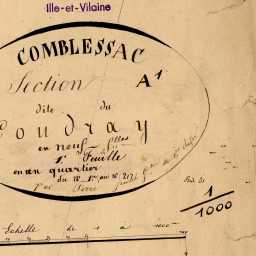 Ille-et-Vilaine
COMBLESSAC
Section A1
dite du
Coudray
en neuf flles
1e Feuille
en un quartier
du No 1er au No 217
1
1000
Echelle de 1 a 1000